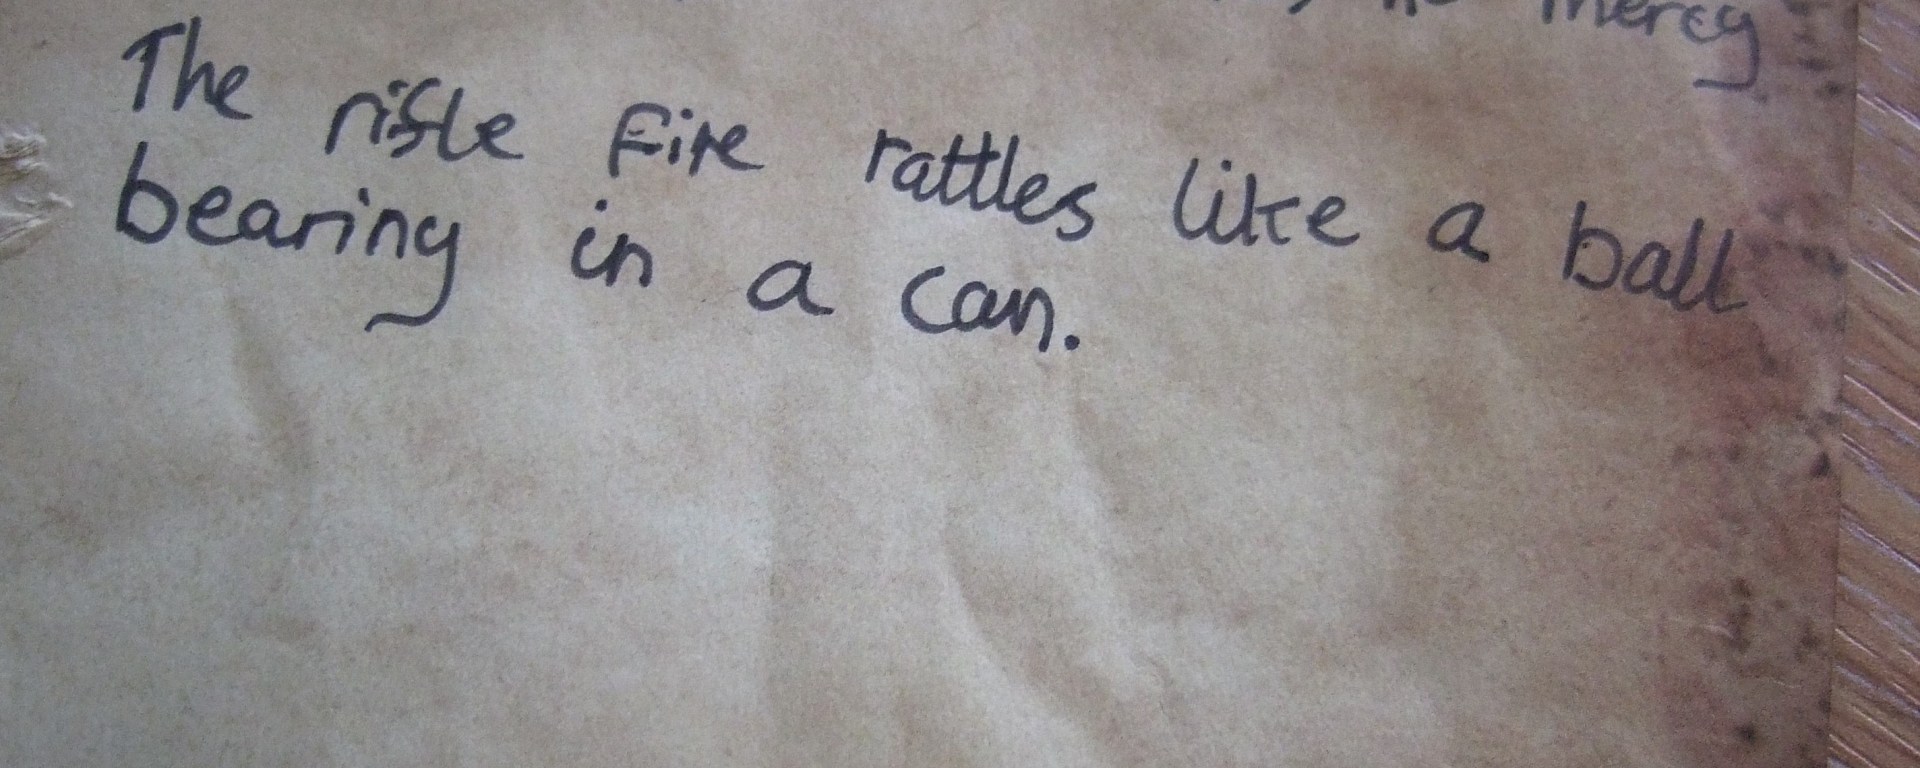 mercy
The rifle fire rattles like a ball
bearing in a can.